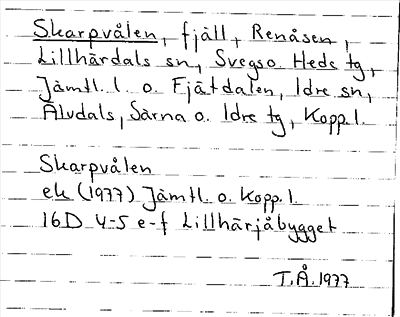 Skarpvålen, fjäll, Renåsen,
Lillhärdals sn, Svegs o. Heds tg,
Jämtl. l. o. Fjätdalen, Idre sn,
Älvdals, Särna o. Idre tg, Kopp. l.
Skarpvålen
ek (1977) Jämtl. o. Kopp. l.
16D 4-5 e-f Lillhärjåbygget
T.Å. 1977